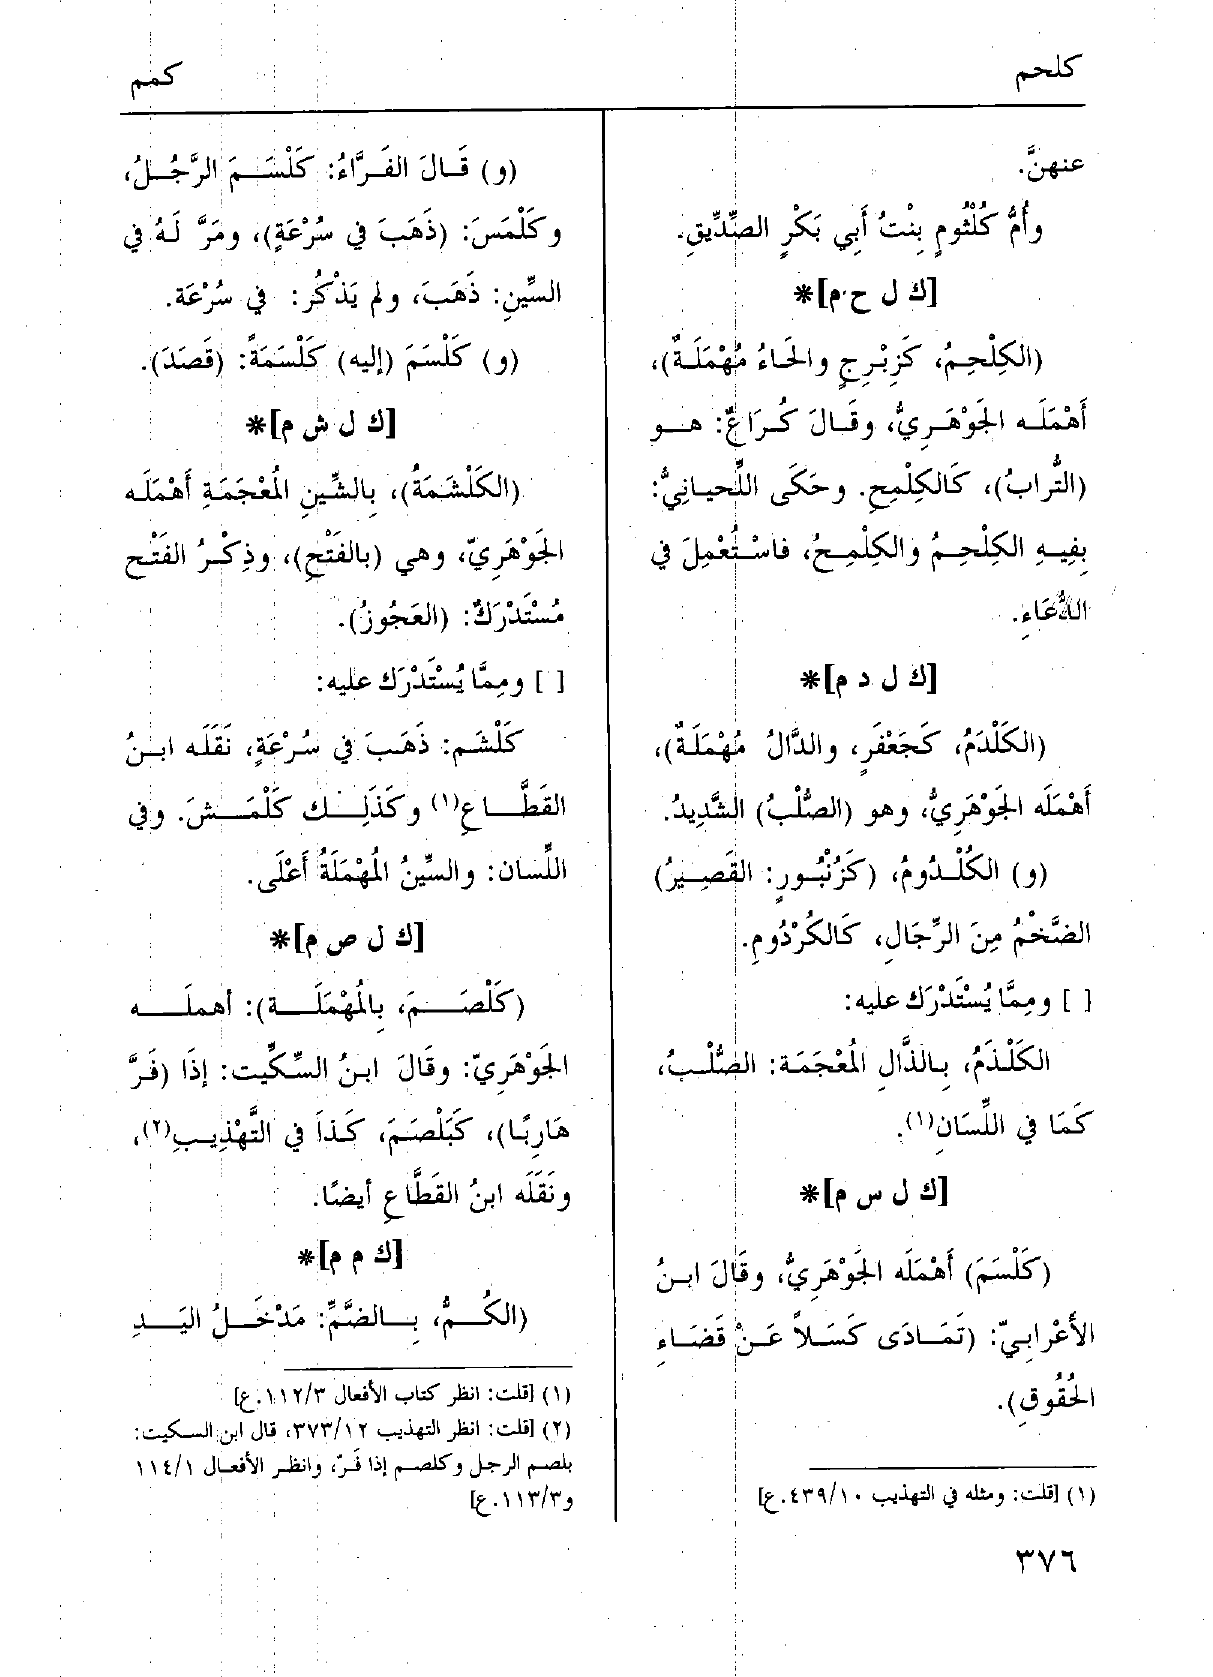 كلحم
كمم
عنهنَّ.
وأُمُّ كُلْثُومٍ بِنْتُ أَبِي بَكْرٍ الصِّدِّيقِ.
[ك ل ح م]*
(الكِلْحِمُ، كَزِبْرِجٍ والحَاءُ مُهْمَلَةٌ)،
أَهْمَلَه الجَوْهَرِيُّ، وقَالَ كُرَاعٌ: هو
(التُّرابُ)، كَالكِلْمِحِ. وحَكَى اللِّحيانِيُّ:
بِفِيهِ الكِلْحِمُ والكِلْمِحُ، فاسْتُعْمِلَ في
الدُّعَاءِ.
[ك ل د م]*
(الكَلْدَمُ، كَجَعْفَرٍ، والدَّالُ مُهْمَلَةٌ)،
أَهْمَلَه الجَوْهَرِيُّ، وهو (الصُّلْبُ) الشَّدِيدُ.
(و) الكُلْدُومُ، (كَزُنْبُورٍ: القَصِيرُ)
الضَّخْمُ مِنَ الرِّجَالِ، كَالكُرْدُومِ.
[ ] ومِمَّا يُسْتَدْرَك عليه:
الكَلْذَمُ، بِالذَّالِ المُعْجَمَة: الصُّلْبُ،
كَمَا في اللِّسَانِ(١).
[ك ل س م]*
(كَلْسَمَ) أَهْمَلَه الجَوْهَرِيُّ، وقَالَ ابنُ
الأَعْرابيّ: (تَمَادَى كَسَلاً عَنْ قَضَاءِ
الحُقُوقِ).
(١) [قلت: ومثله في التهذيب ٤٣٩/١٠.ع]
(و) قَالَ الفَرَّاءُ: كَلْسَمَ الرَّجُلُ،
وكَلْمَسَ: (ذَهَبَ في سُرْعَةٍ)، ومَرَّ لَهُ في
السِّينِ: ذَهَبَ، ولم يَذْكُر: في سُرْعَة.
(و) كَلْسَمَ (إليه) كَلْسَمَةً: (قَصَدَ).
[ك ل ش م]*
(الكَلْشَمَةُ)، بِالشِّينِ المُعْجَمَةِ أَهْمَلَه
الجَوْهَرِيّ، وهي (بالفَتْحِ)، وذِكْرُ الفَتْح
مُسْتَدْرَكٌ: (العَجُوزُ).
[ ] ومِمَّا يُسْتَدْرَك عليه:
كَلْشَم: ذَهَبَ في سُرْعَةٍ، نَقَلَه ابنُ
القَطَّاعِ(١) وكَذَلِك كَلْمَشَ. وفي
اللِّسان: والسِّينُ المُهْمَلَةُ أَعْلَى.
[ك ل ص م]*
(كَلْصَمَ، بِالمُهْمَلَة): أهملَه
الجَوْهَرِيّ: وقَالَ ابنُ السِّكِّيت: إذَا (فَرَّ
هَارِبًا)، كَبَلْصَمَ، كَذاَ في التَّهْذِيبِ(٢)،
ونَقَلَه ابنُ القَطَّاعِ أيضًا.
[ك م م]*
(الكُمُّ، بِالضَّمِّ: مَدْخَلُ اليَدِ
(١) [قلت: انظر كتاب الأفعال ١١٢/٣.ع]
(٢) [قلت: انظر التهذيب ٣٧٣/١٢، قال ابن السكيت:
بلصم الرجل وكلصم إذا فَرّ، وانظر الأفعال ١١٤/١
و١١٣/٣.ع]
٣٧٦